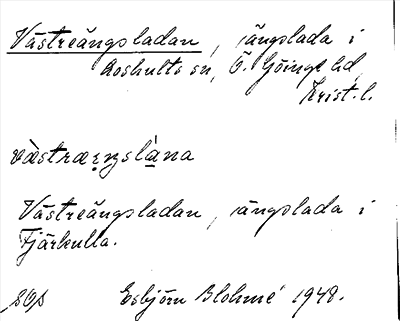 Västreängsladan, ängslada i
Loshults sn, Ö. Göinge hd,
Krist. l.
Västreängsladan, ängslada i
Fjärhulla.
Esbjörn Blohmé 1948.